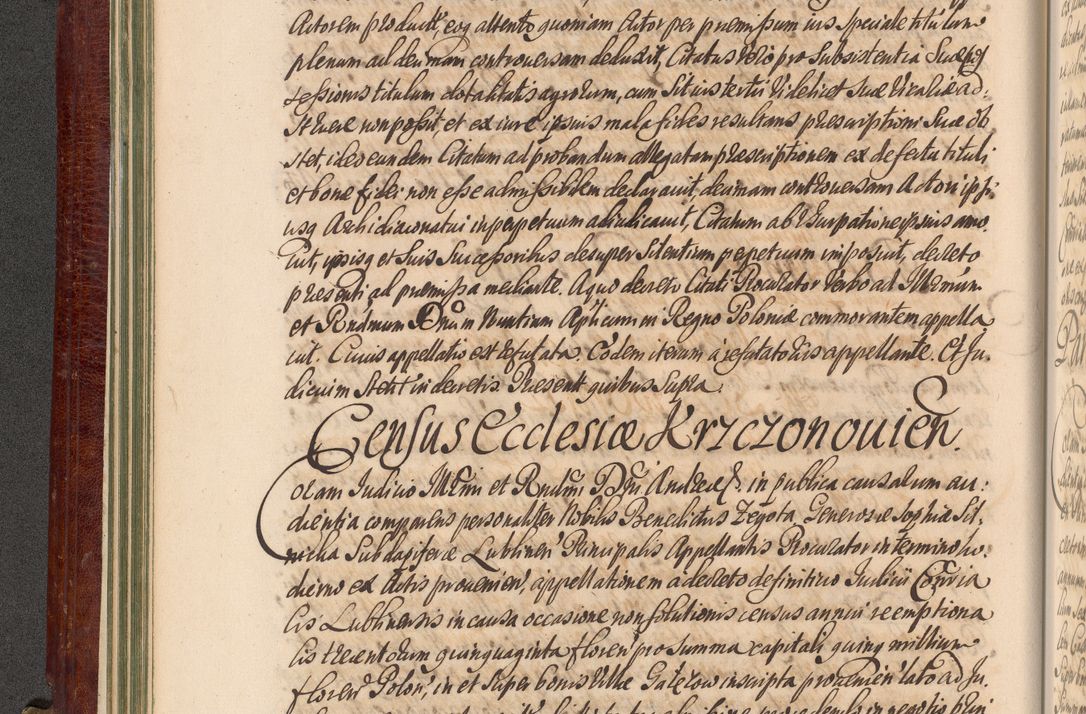 Actorem producta, eoq attento quoniam Actor per præmissum ius speciale titulum
plenum ad decimam controversam deduxit, Citatus verò pro subsistentia Suæ pos
sessionis titulum dotalitatis agrorum, cum sit ius tertii videlicet suæ Vicariæ ad.
struere non possit, et ex iure ipsius mala fides resultans præscriptioni Suæ ob
stet, ideo eundem Citatum ad probandum allegatam præscriptionem ex defectu tituli
et bonæ fidei non esse admissibilem declarauit, decimam controversam Actori ipsi
usq Archidiaconatui in perpetuum adiudicauit, Citatum ab Usurpatione ipsius amo
uit, ipsiq et Suis Successoribus desuper Silentium perpetuum imposuit, decreto
præsenti ad præmissa mediante. A quo decreto Citati Procurator Verbo ad Illmum
et Rndmum Dnum Nuntium Aplicum in Regno Poloniæ commorantem appella
uit. Cuius appellatio est refutata. Eodem iterum à refutatoriis appellante. Et Ju.
dicium stetit in decretis. Present quibus Supra.
Census Ecclesiæ Krzczonouien.
Coram Iudicio Illmi et Rndmi Dni Andreæ &. in publica causarum au:
dientia comparens personaliter Nobilis Benedictus Zegota, Generosæ Sophiæ Sit.
nicka Subdapiferæ Lublinen' Principalis Appellantis Procurator in termino ho.
dierno ex Actis prouenien', appellationem a decreto definitivo Iudicii
lis Lublinensis in causa occasione non solutionis census annui reemptiona
lis trecentorum quinquaginta floren' pro summa capitali quinq millium
floren' Polon', in et super bonis Villæ inscripta prouenien' lato ad Ju.